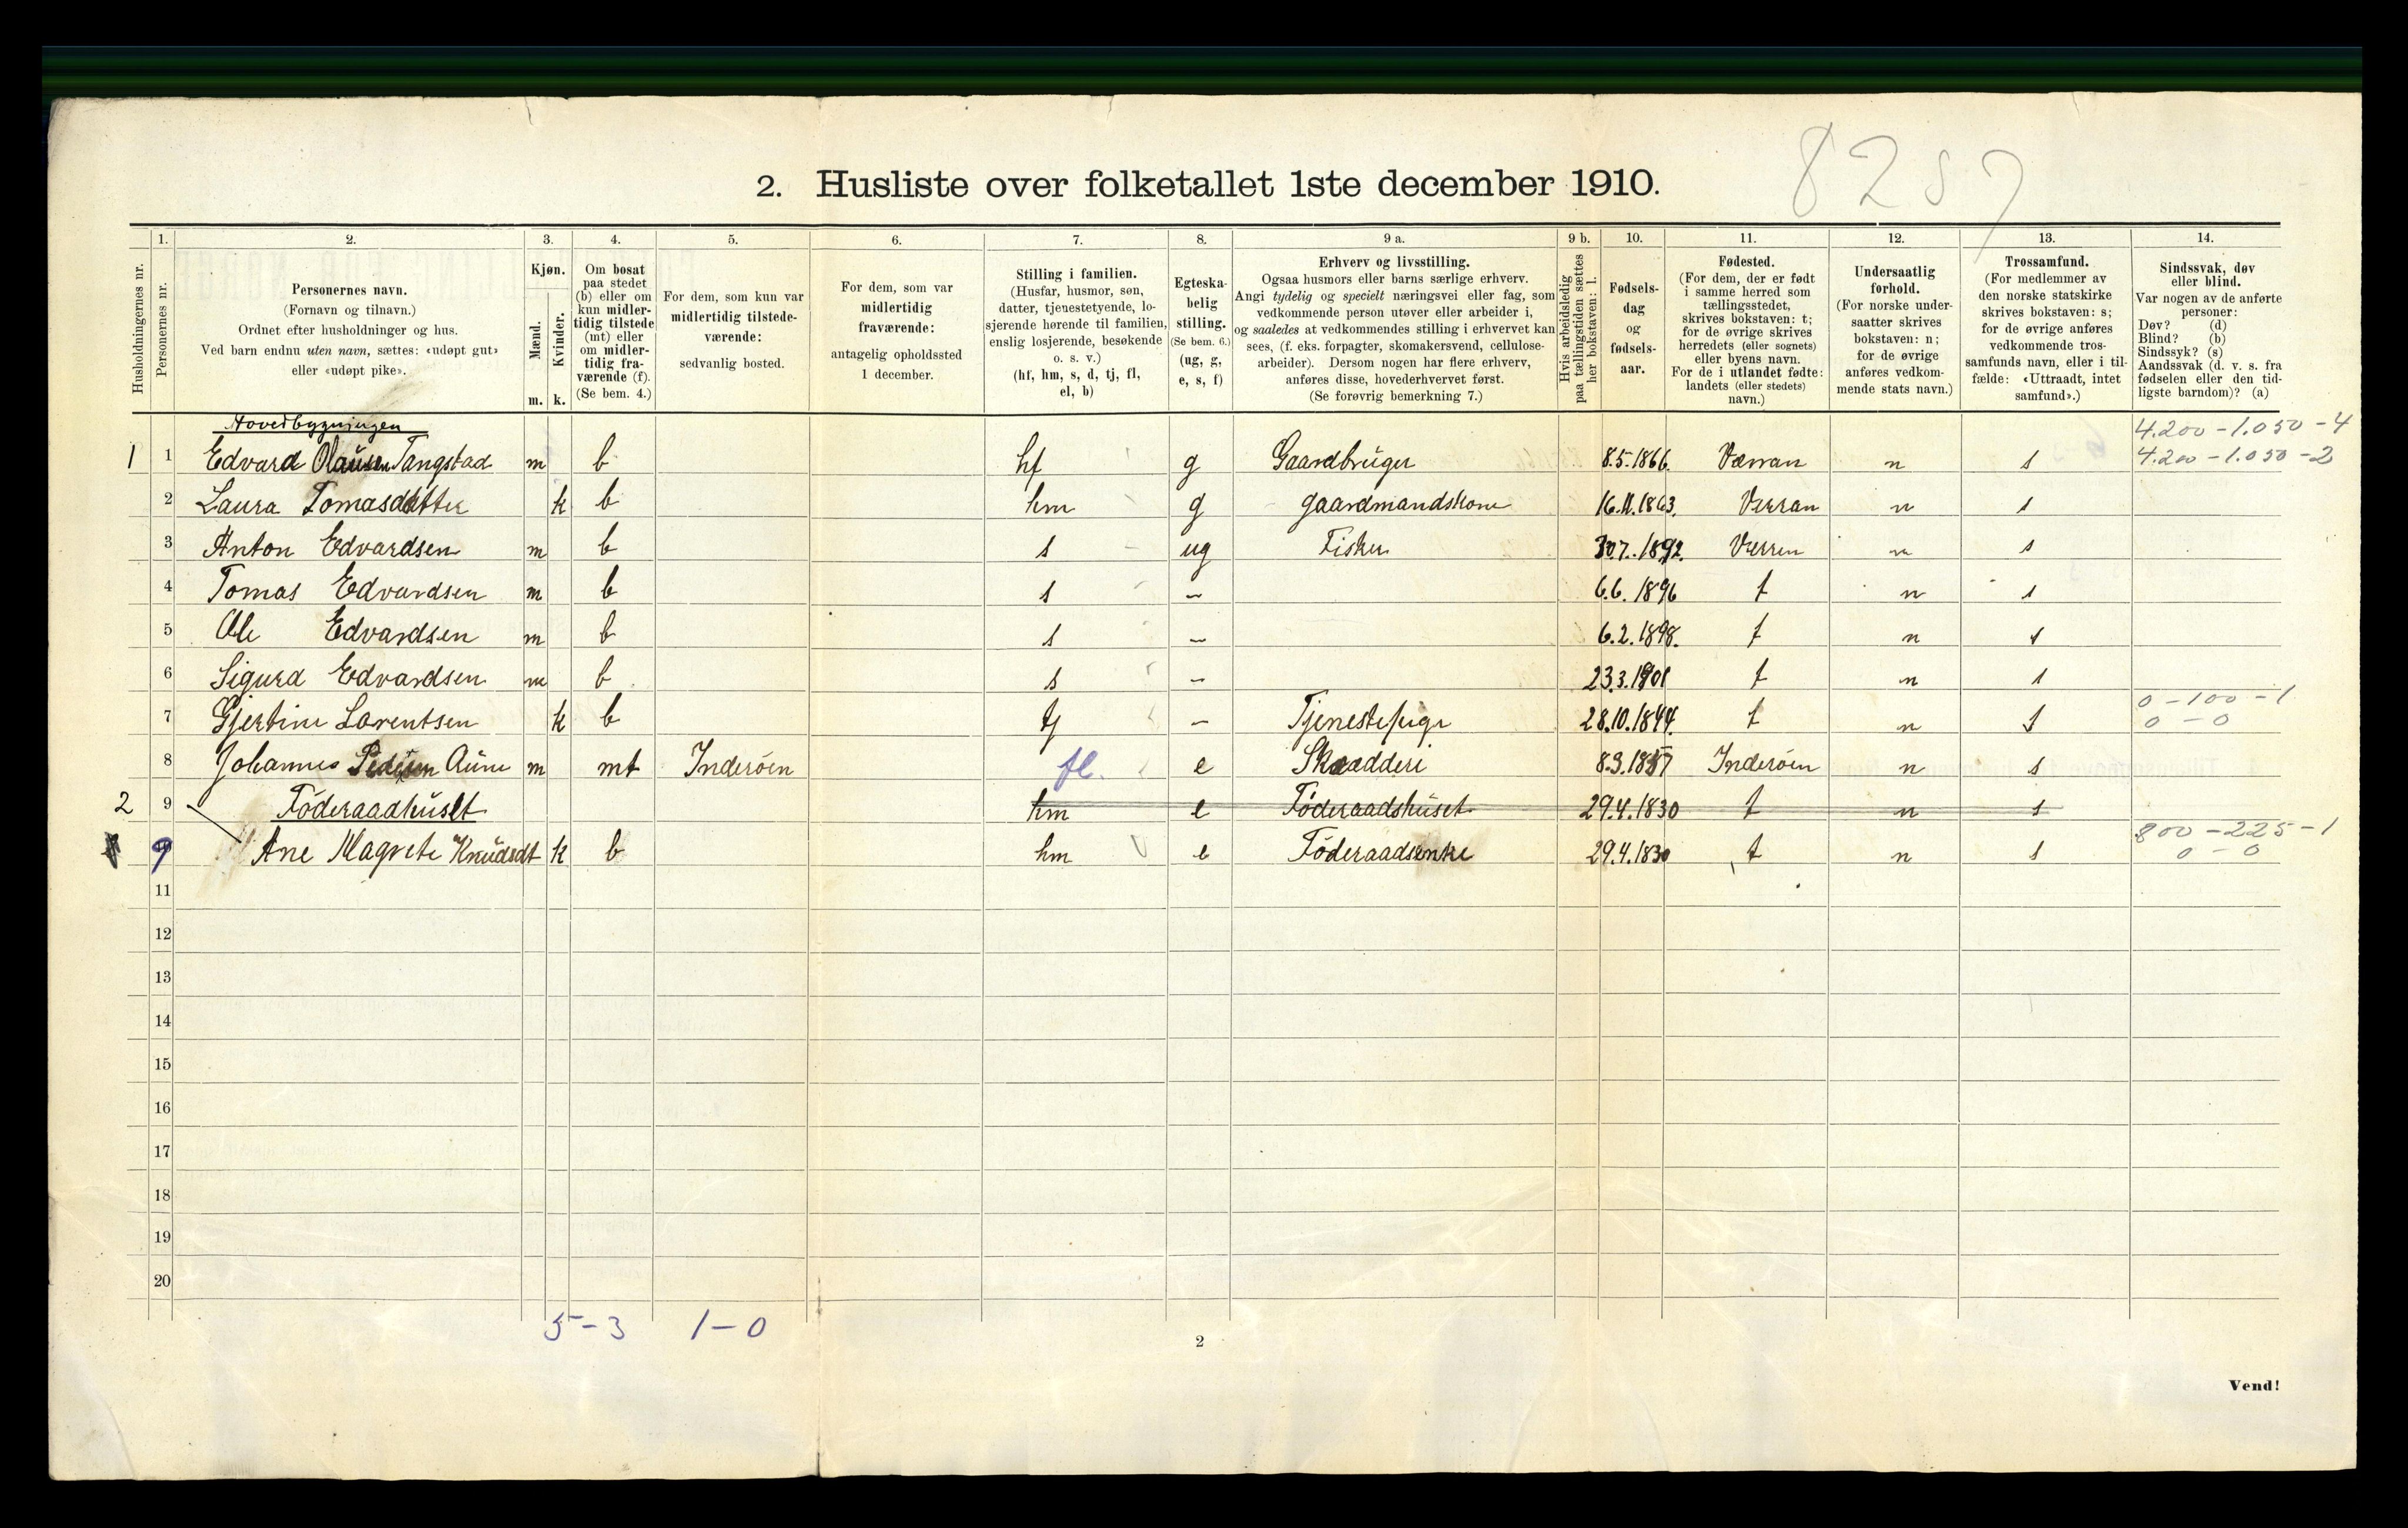 8287
2. Husliste over folketallet 1ste december 1910.
1. 2. 3. 4. 5. 6. 7. 8. 9 a. 9 b. 10. 11. 12. 13. 14.
Husholdningernes nr.
Personernes nr.
Personernes navn.
(Fornavn og tilnavn.)
Ordnet efter husholdninger og hus.
Ved barn endnu uten navn, sættes: «udøpt gut»
eller «udøpt pike».
Kjøn.
Mænd.
Kvinder.
m. k.
Om bosat
paa stedet
(b) eller om
kun midler-
tidig tilstede
(mt) eller
om midler-
tidig fra-
værende (f).
(Se bem. 4.)
For dem, som kun var
midlertidig tilstede-
værende:
sedvanlig bosted.
For dem, som var
midlertidig
fraværende:
antagelig opholdssted
1 december.
Stilling i familien.
(Husfar, husmor, søn,
datter, tjenestetyende, lo-
sjerende hørende til familien,
enslig losjerende, besøkende
o. s. v.)
(hf, hm, s, d, tj, fl,
el, b)
Egteska-
belig
stilling.
(Se bem. 6.)
(ug, g,
e, s, f)
Erhverv og livsstilling.
Ogsaa husmors eller barns særlige erhverv.
Angi tydelig og specielt næringsvei eller fag, som
vedkommende person utøver eller arbeider i,
og saaledes at vedkommendes stilling i erhvervet kan
sees, (f. eks. forpagter, skomakersvend, cellulose-
arbeider). Dersom nogen har flere erhverv,
anføres disse, hovederhvervet først.
(Se forøvrig bemerkning 7.)
Hvis arbeidsledig
paa tællingstiden sættes
her bokstaven: l.
Fødsels-
dag
og
fødsels-
aar.
Fødested.
(For dem, der er født
i samme herred som
tællingsstedet,
skrives bokstaven: t;
for de øvrige skrives
herredets (eller sognets)
eller byens navn.
For de i utlandet fødte:
landets (eller stedets)
navn.)
Undersaatlig
forhold.
(For norske under-
saatter skrives
bokstaven: n;
for de øvrige
anføres vedkom-
mende stats navn.)
Trossamfund.
(For medlemmer av
den norske statskirke
skrives bokstaven: s;
for de øvrige anføres
vedkommende tros-
samfunds navn, eller i til-
fælde: «Uttraadt, intet
samfund».)
Sindssvak, døv
eller blind.
Var nogen av de anførte
personer:
Døv? (d)
Blind? (b)
Sindssyk? (s)
Aandssvak (d. v. s. fra
fødselen eller den tid-
ligste barndom)? (a)
Hovedbygningen 4.200 - 1.050 - 4
1 1 Edvard Olausen Tangstad m b hf g Gaardbruger 8.5.1866. Værran n s 4.200 - 1.050 - 2
2 Laura Tomasdatter k b hm g gaardmandskone 16.11.1863. Verran n s
3 Anton Edvardsen m b s ug Fisker 30.7.1892. Værren n s
4 Tomas Edvardsen m b s - 6.6.1896 t n s
5 Ole Edvardsen m b s - 6.2.1898. t n s
6 Sigurd Edvardsen m b s - 23.3.1901 t n s
7 Gjertine Lorentsen k b tj - Tjenestepige 28.10.1844. t n s 0 - 100 - 1
0 - 0
8 Johannes Pedersen Aune m mt Inderöen fl. e Skrædderi 8.3.1857 Inderöen n s
2 9 Föderaadhuset hm e Föderaadshuset 29.4.1830 t n s
9 Ane Magrete Knudsdt k b hm e Föderaadsenke 29.4.1830 t n s 800 - 225 - 1
0 - 0
11
12
13
14
15
16
17
18
19
20
5 - 3 1 - 0
2
Vend!